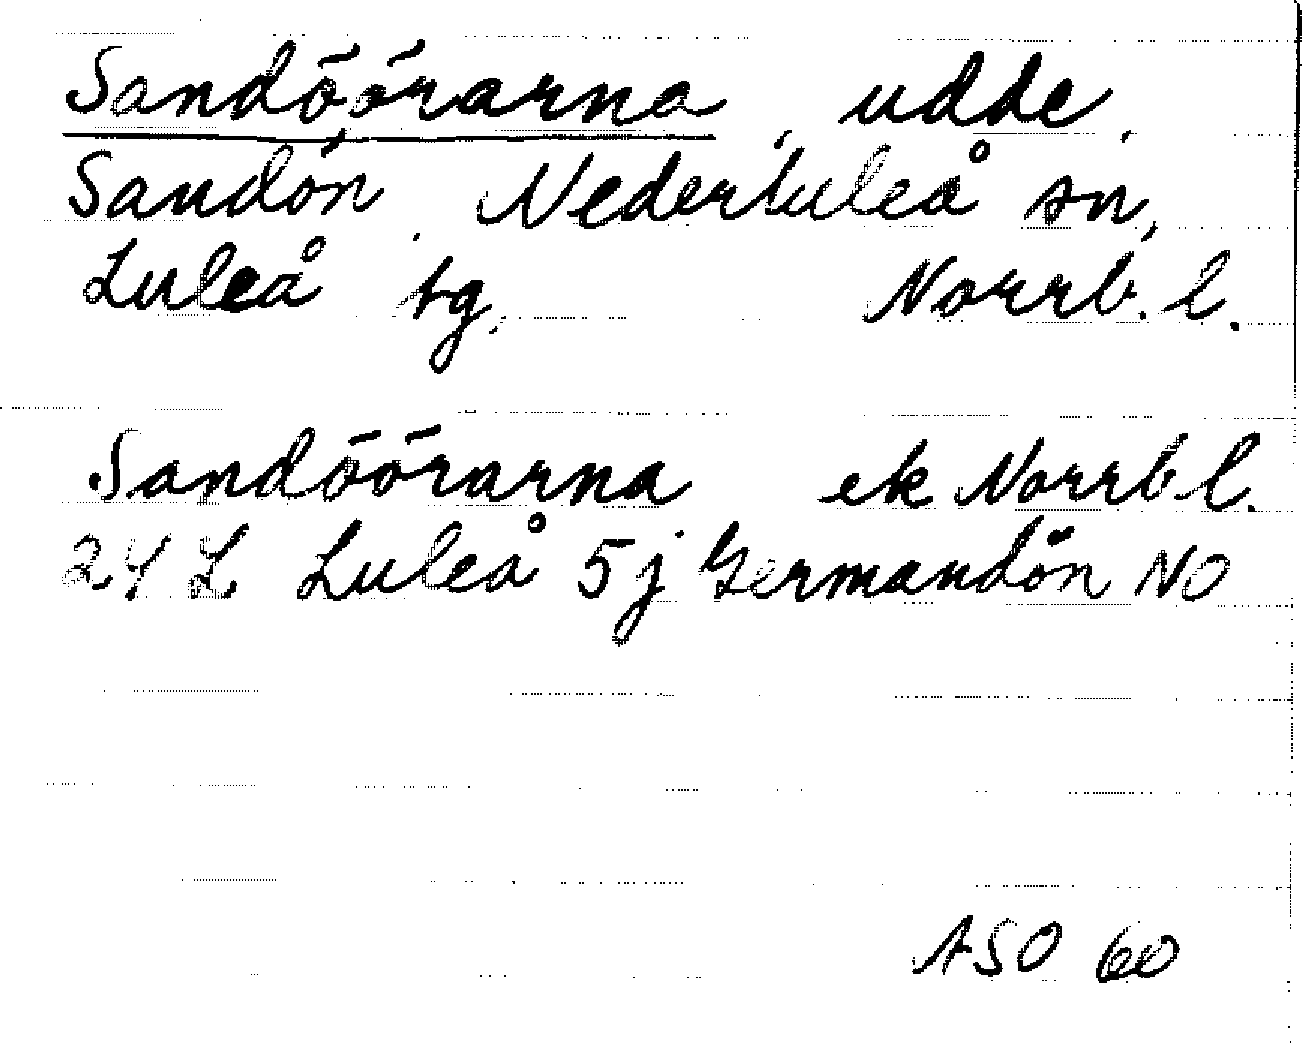 Sandöörarna, udde,
Sandön, Nederluleå sn,
Luleå tg, Norrb. l.
Sandöörarna ek Norrb l.
24 L Luleå 5j Germandön NO
ASO 60